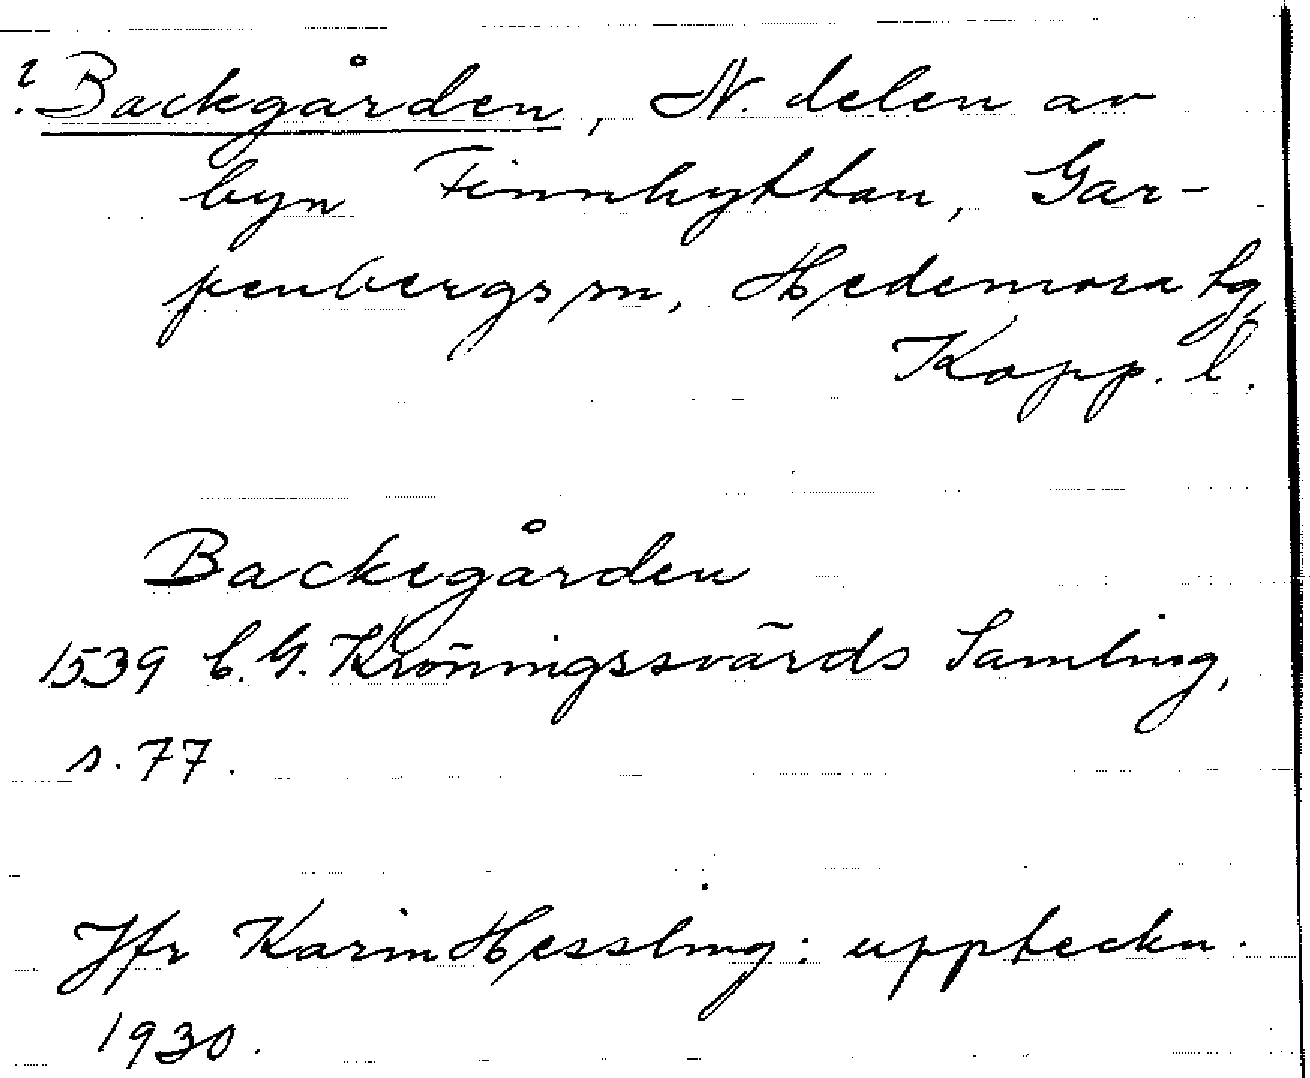 ? Backgården, N. delen av
byn Finnhyttan, Gar-
penbergs sn, Hedemora tg,
Kopp. l.
Backegården
1539 C. G. Kröningssvärds Samling,
s. 77.
Jfr Karin Hessling: uppteckn.
1930.